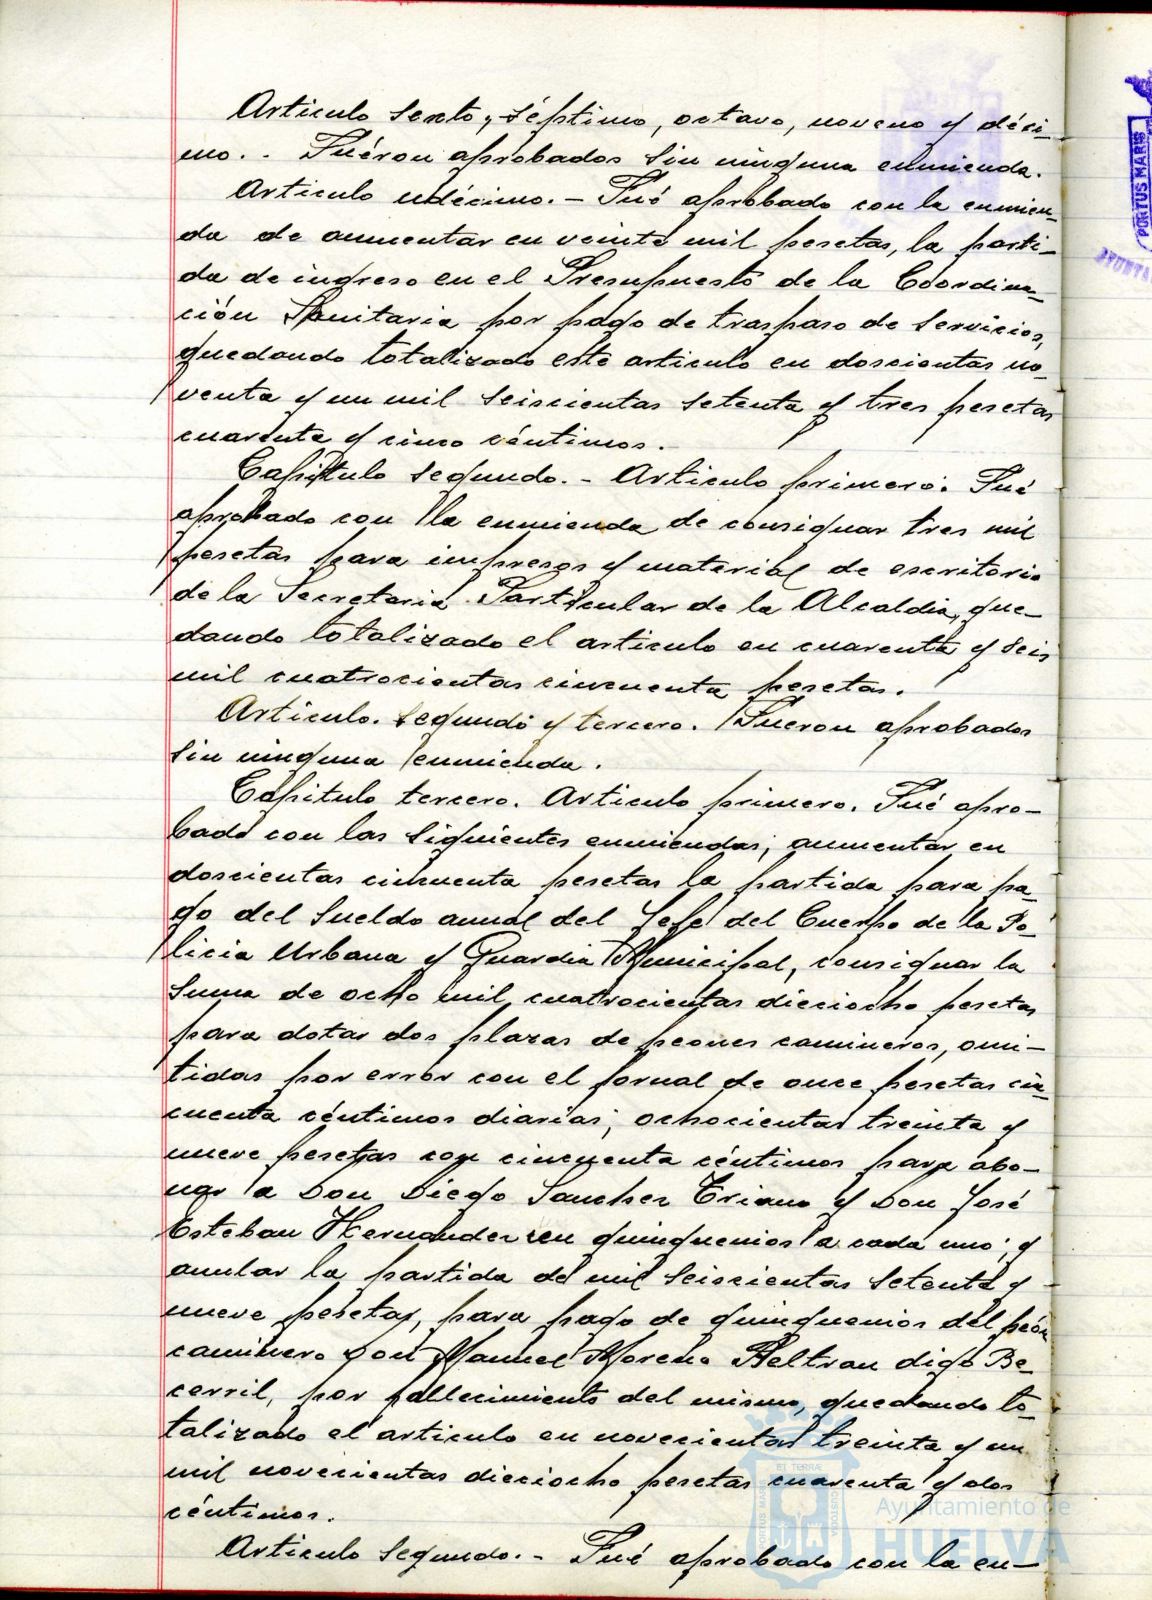 Articulo sexto, séptimo, octavo, noveno y déci-
mo.- Fuéron aprobados sin ninguna enmienda.
Articulo undécimo.- Fué aprobado con la enmien-
da de aumentar en veinte mil pesetas, la parti-
da de ingreso en el Presupuesto de la Coordina-
ción Sanitaria por pago de traspaso de servicios,
quedando totalizado este articulo en doscientas no-
venta y un mil seiscientas setenta y tres pesetas
cuarenta y cinco céntimos.-
Capitulo segundo.- Articulo primero. Fué
aprobado con la enmienda de consignar tres mil
pesetas para impresos y material de escritorio
de la Secretaria Particular de la Alcaldia, que-
dando totalizado el articulo en cuarenta y seis
mil cuatrocientas cincuenta pesetas.
Articulo. segundo y tercero. Fueron aprobados
sin ninguna enmienda.
Capitulo tercero. Articulo primero. Fué apro-
bado con las siguientes enmiendas; aumentar en
doscientas cincuenta pesetas la partida para pa-
go del sueldo anual del Jefe del Cuerpo de la Po-
licia Urbana y Guardia Municipal, consignar la
suma de ocho mil cuatrocientas dieciocho pesetas
para dotar dos plazas de peones camineros, omi-
tidas por error con el jornal de once pesetas cin-
cuenta céntimos diarias; ochocientas treinta y
nueve pesetas con cincuenta céntimos para abo-
nar a Don Diego Sanchez Triano y Don José
Esteban Hernandez en quinquenios a cada uno; y
anular la partida de mil seiscientas setenta y
nueve pesetas, para pago de quinquenios del peón
caminero Don Manuel Moreno Beltran digo Be-
cerril, por fallecimiento del mismo, quedando to-
talizado el articulo en novecientas treinta y un
mil novecientas dieciocho pesetas cuarenta y dos
céntimos.
Articulo segundo.- Fué aprobado con la en-
PORTUS MARIS
Ayuntamiento de
HUELVA